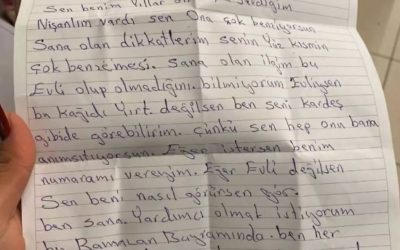 Sen benim Yıllar
Nişanlım vardı sen Ona çok benziyorsun
Sana olan dikkatlerim senin Yüz kısmın
çok benzemesi. Sana olan ilgim bu
Evli olup olmadığını. bilmiyorum. Evliysen
bu kağıdı Yırt. değilsen ben seni kardeş
gibide görebilirim. Çünkü sen hep onu bana
anımsıtıyorsun. Eğer istersen benim
numaramı vereyim. Eğer Evli değilsen
Sen beni nasıl görürsen gör.
ben sana. Yardımcı olmak istiyorum
bu Ramazan Bayramında. ben her